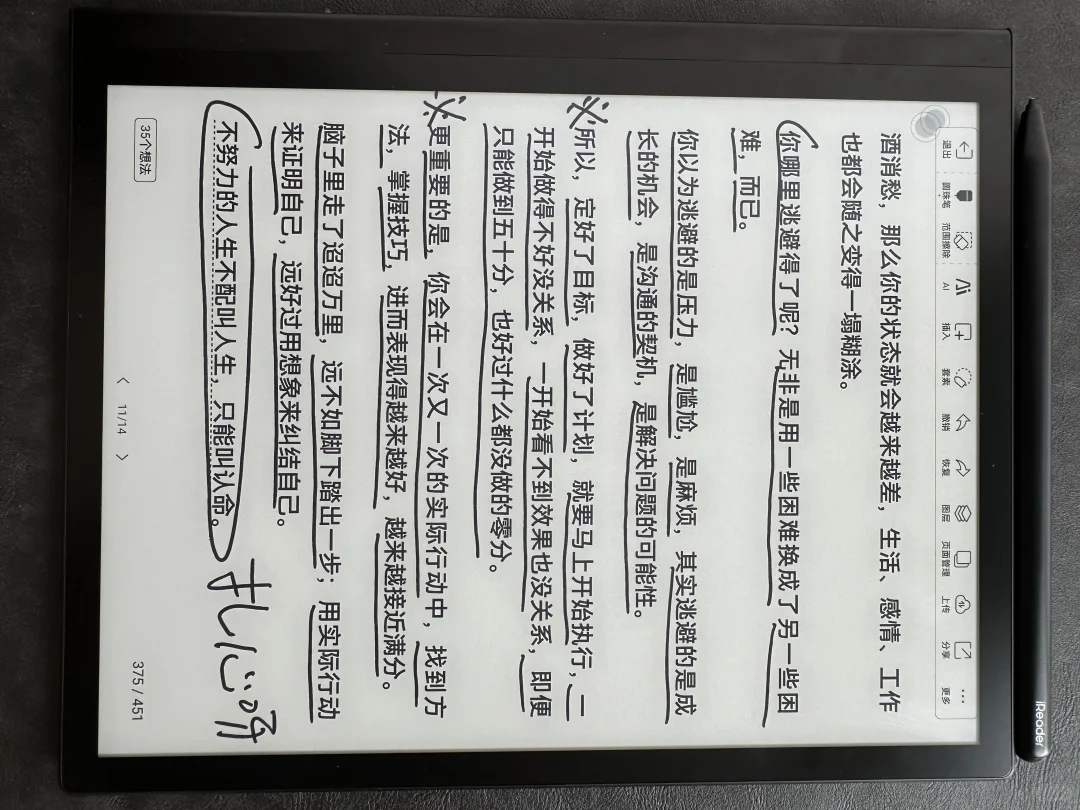 退出 圆珠笔 范围擦除 AI 插入 套索 撤销 恢复 图层 页面管理 上传 分享 更多
酒消愁，那么你的状态就会越来越差，生活、感情、工作
也都会随之变得一塌糊涂。
你哪里逃避得了呢？无非是用一些困难换成了另一些困
难，而已。
你以为逃避的是压力，是尴尬，是麻烦，其实逃避的是成
长的机会，是沟通的契机，是解决问题的可能性。
所以，定好了目标，做好了计划，就要马上开始执行，一
开始做得不好没关系，一开始看不到效果也没关系，即便
只能做到五十分，也好过什么都没做的零分。
更重要的是，你会在一次又一次的实际行动中，找到方
法，掌握技巧，进而表现得越来越好，越来越接近满分。
脑子里走了迢迢万里，远不如脚下踏出一步；用实际行动
来证明自己，远好过用想象来纠结自己。
不努力的人生不配叫人生，只能叫认命。
扎心啊
35个想法
11/14
375 / 451
iReader